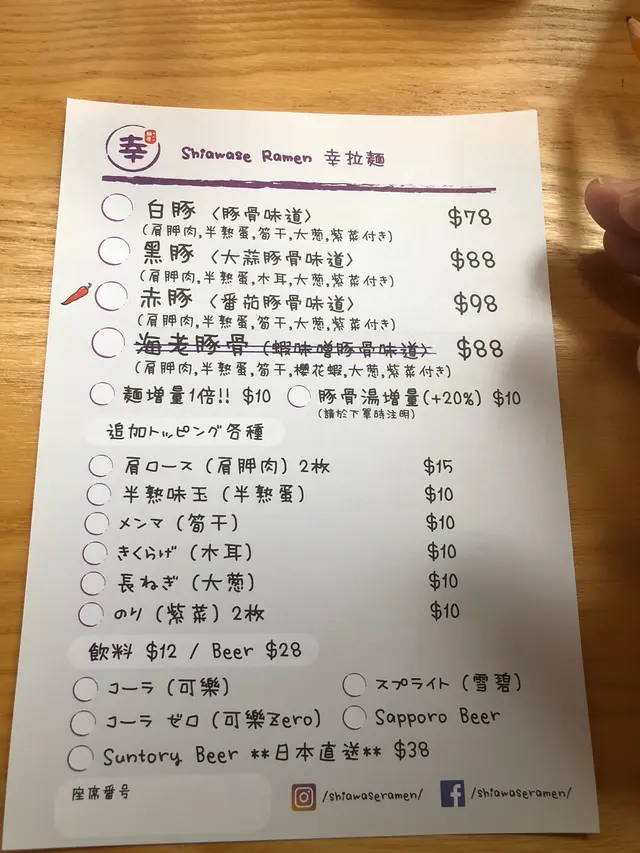 幸
Shiawase Ramen 幸拉麵
白豚 〈豚骨味道〉 $78
(肩胛肉,半熟蛋,筍干,大葱,紫菜付き)
黑豚 〈大蒜豚骨味道〉 $88
(肩胛肉,半熟蛋,木耳,大葱,紫菜付き)
赤豚 〈番茄豚骨味道〉 $98
(肩胛肉,半熟蛋,筍干,大葱,紫菜付き)
海老豚骨 〈蝦味噌豚骨味道〉 $88
(肩胛肉,半熟蛋,筍干,櫻花蝦,大葱,紫菜付き)
麵增量1倍!! $10 豚骨湯增量(+20%) $10
(請於下單時注明)
追加トッピング各種
肩ロース (肩胛肉) 2枚 $15
半熟味玉 (半熟蛋) $10
メンマ (筍干) $10
きくらげ (木耳) $10
長ねぎ (大葱) $10
のり (紫菜) 2枚 $10
飲料 $12 / Beer $28
コーラ (可樂) スプライト (雪碧)
コーラ ゼロ (可樂Zero) Sapporo Beer
Suntory Beer **日本直送** $38
座席番号 /shiawaseramen/ /shiawaseramen/